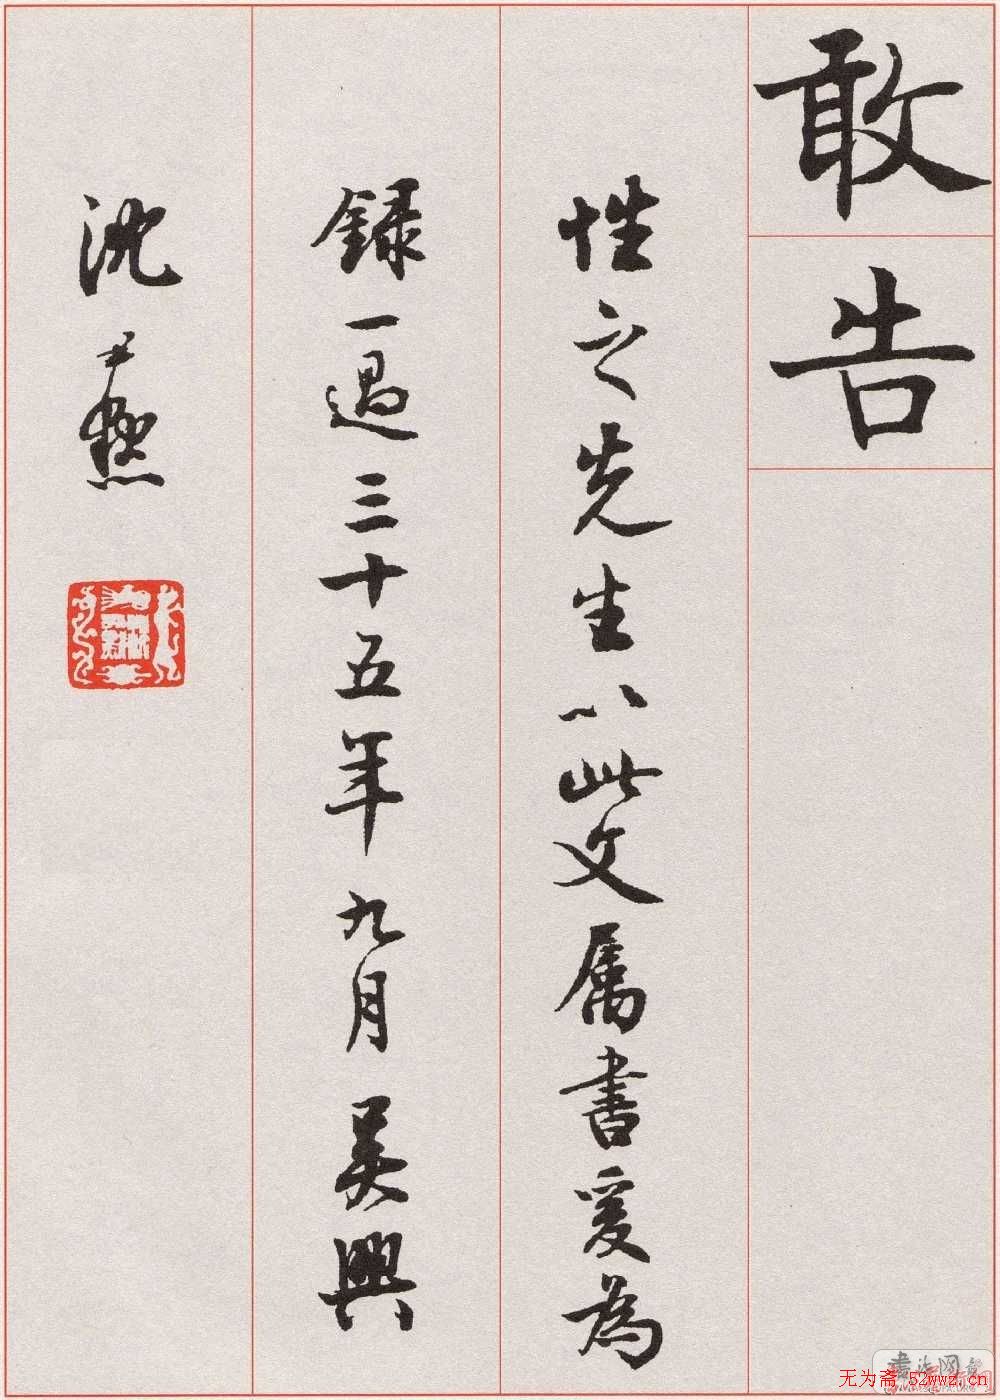 敢告
性之先生以此文属書爰為
録一過三十五年九月吳興
沈尹默
书法网
无为斋 52wwz.cn